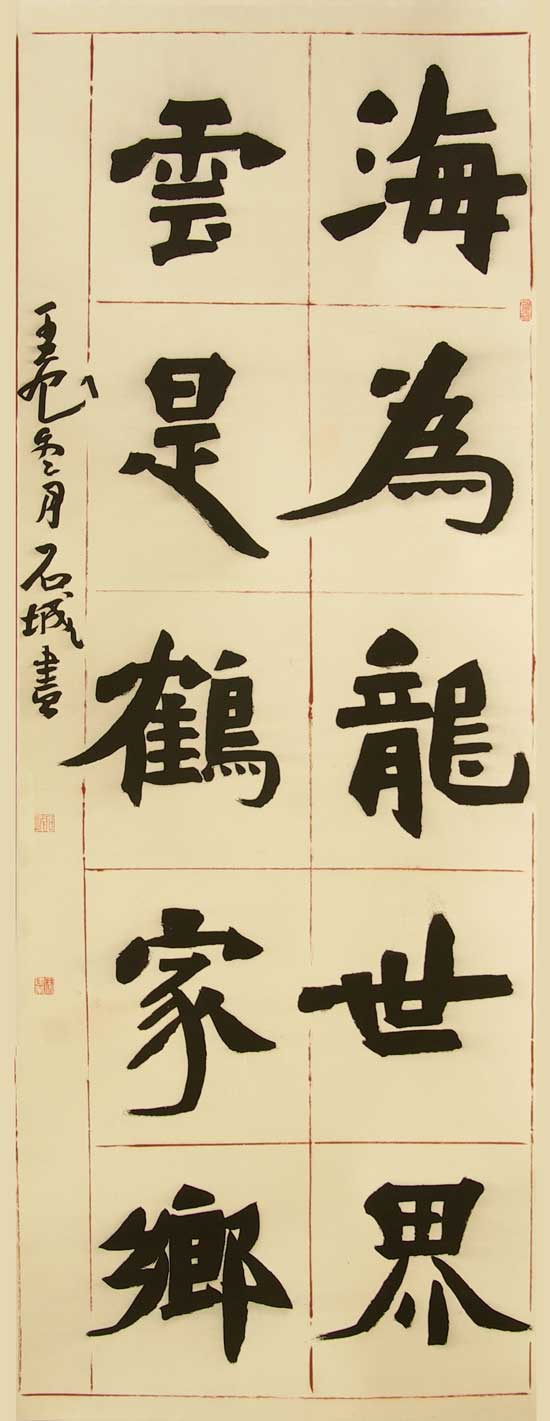 海為龍世界
雲是鶴家鄉
冬月石城書